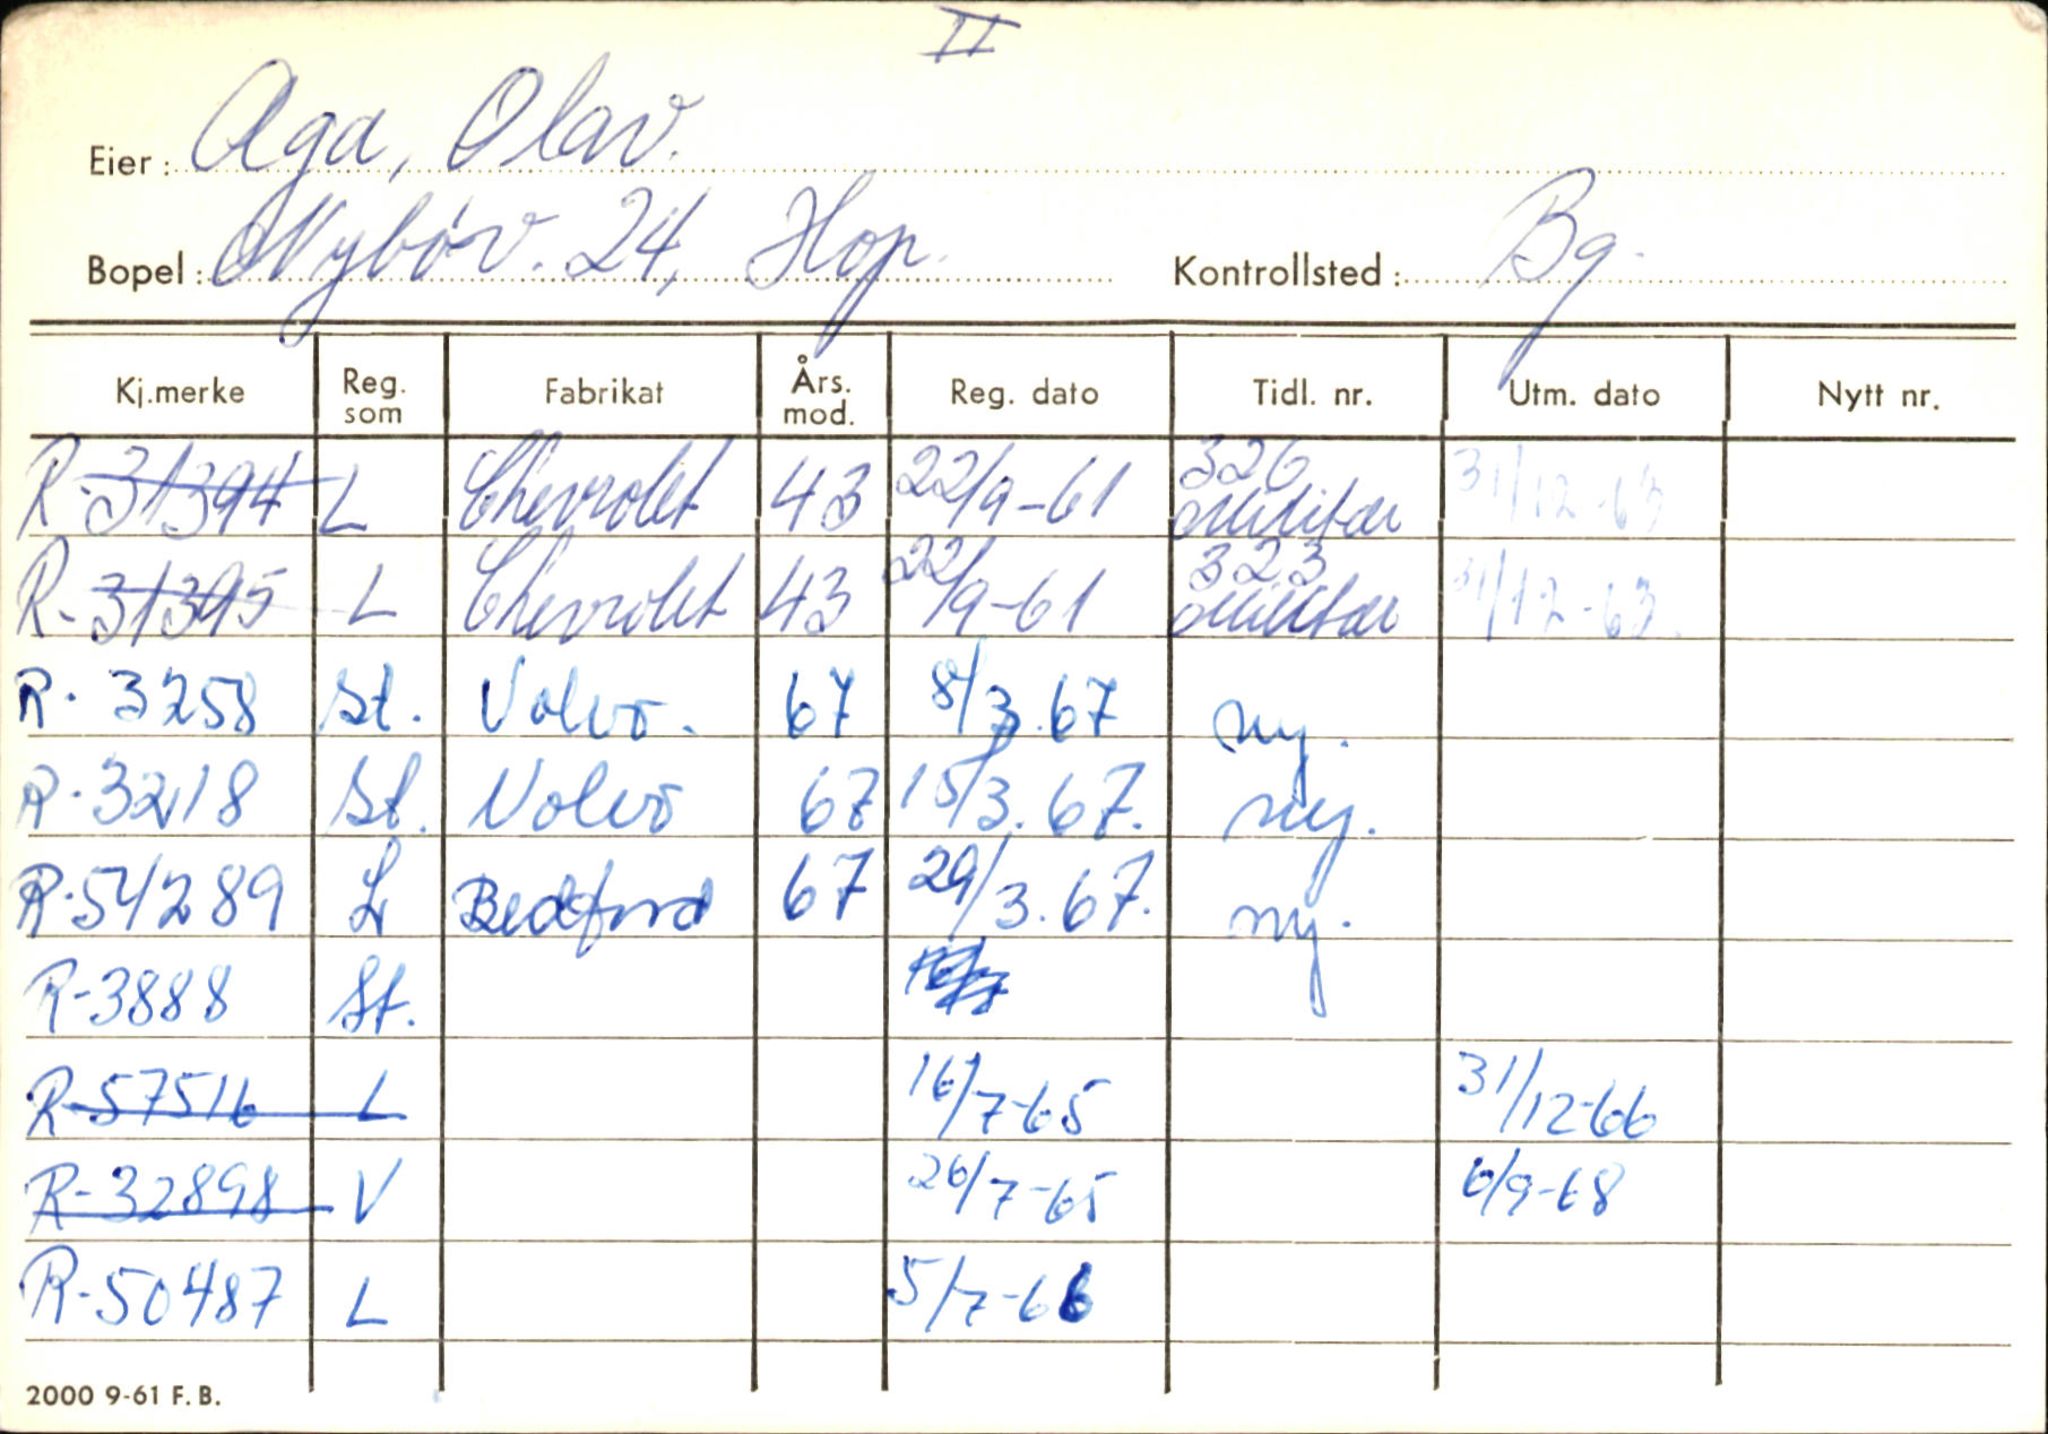 II
Eier: Aga, Olav.
Bopel: Nybøv. 24, Hop. Kontrollsted: Bg.
Kj.merke Reg. som Fabrikat Års. mod. Reg. dato Tidl. nr. Utm. dato Nytt nr.
R-31394 L Chevrolet 43 22/9-61 326 Militær 31/12-63
R-31395 L Chevrolet 43 22/9-61 323 Militær 31/12-63.
R-3258 St. Volvo. 67 8/3.67 ny.
R-3218 St. Volvo 67 15/3.67. ny.
R-54289 L Bedford 67 29/3.67. ny.
R-3888 St.
R-57516 L 16/7-65 31/12-66
R-32898 V 26/7-65 6/9-68
R-50487 L 5/7-66
2000 9-61 F. B.